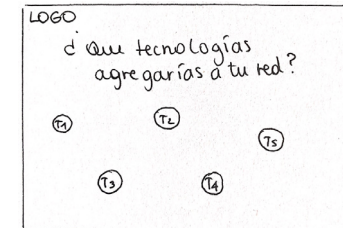 LOGO
¿ Que tecnologías
agregarías a tu red?
T1
T2
T5
T3
T4